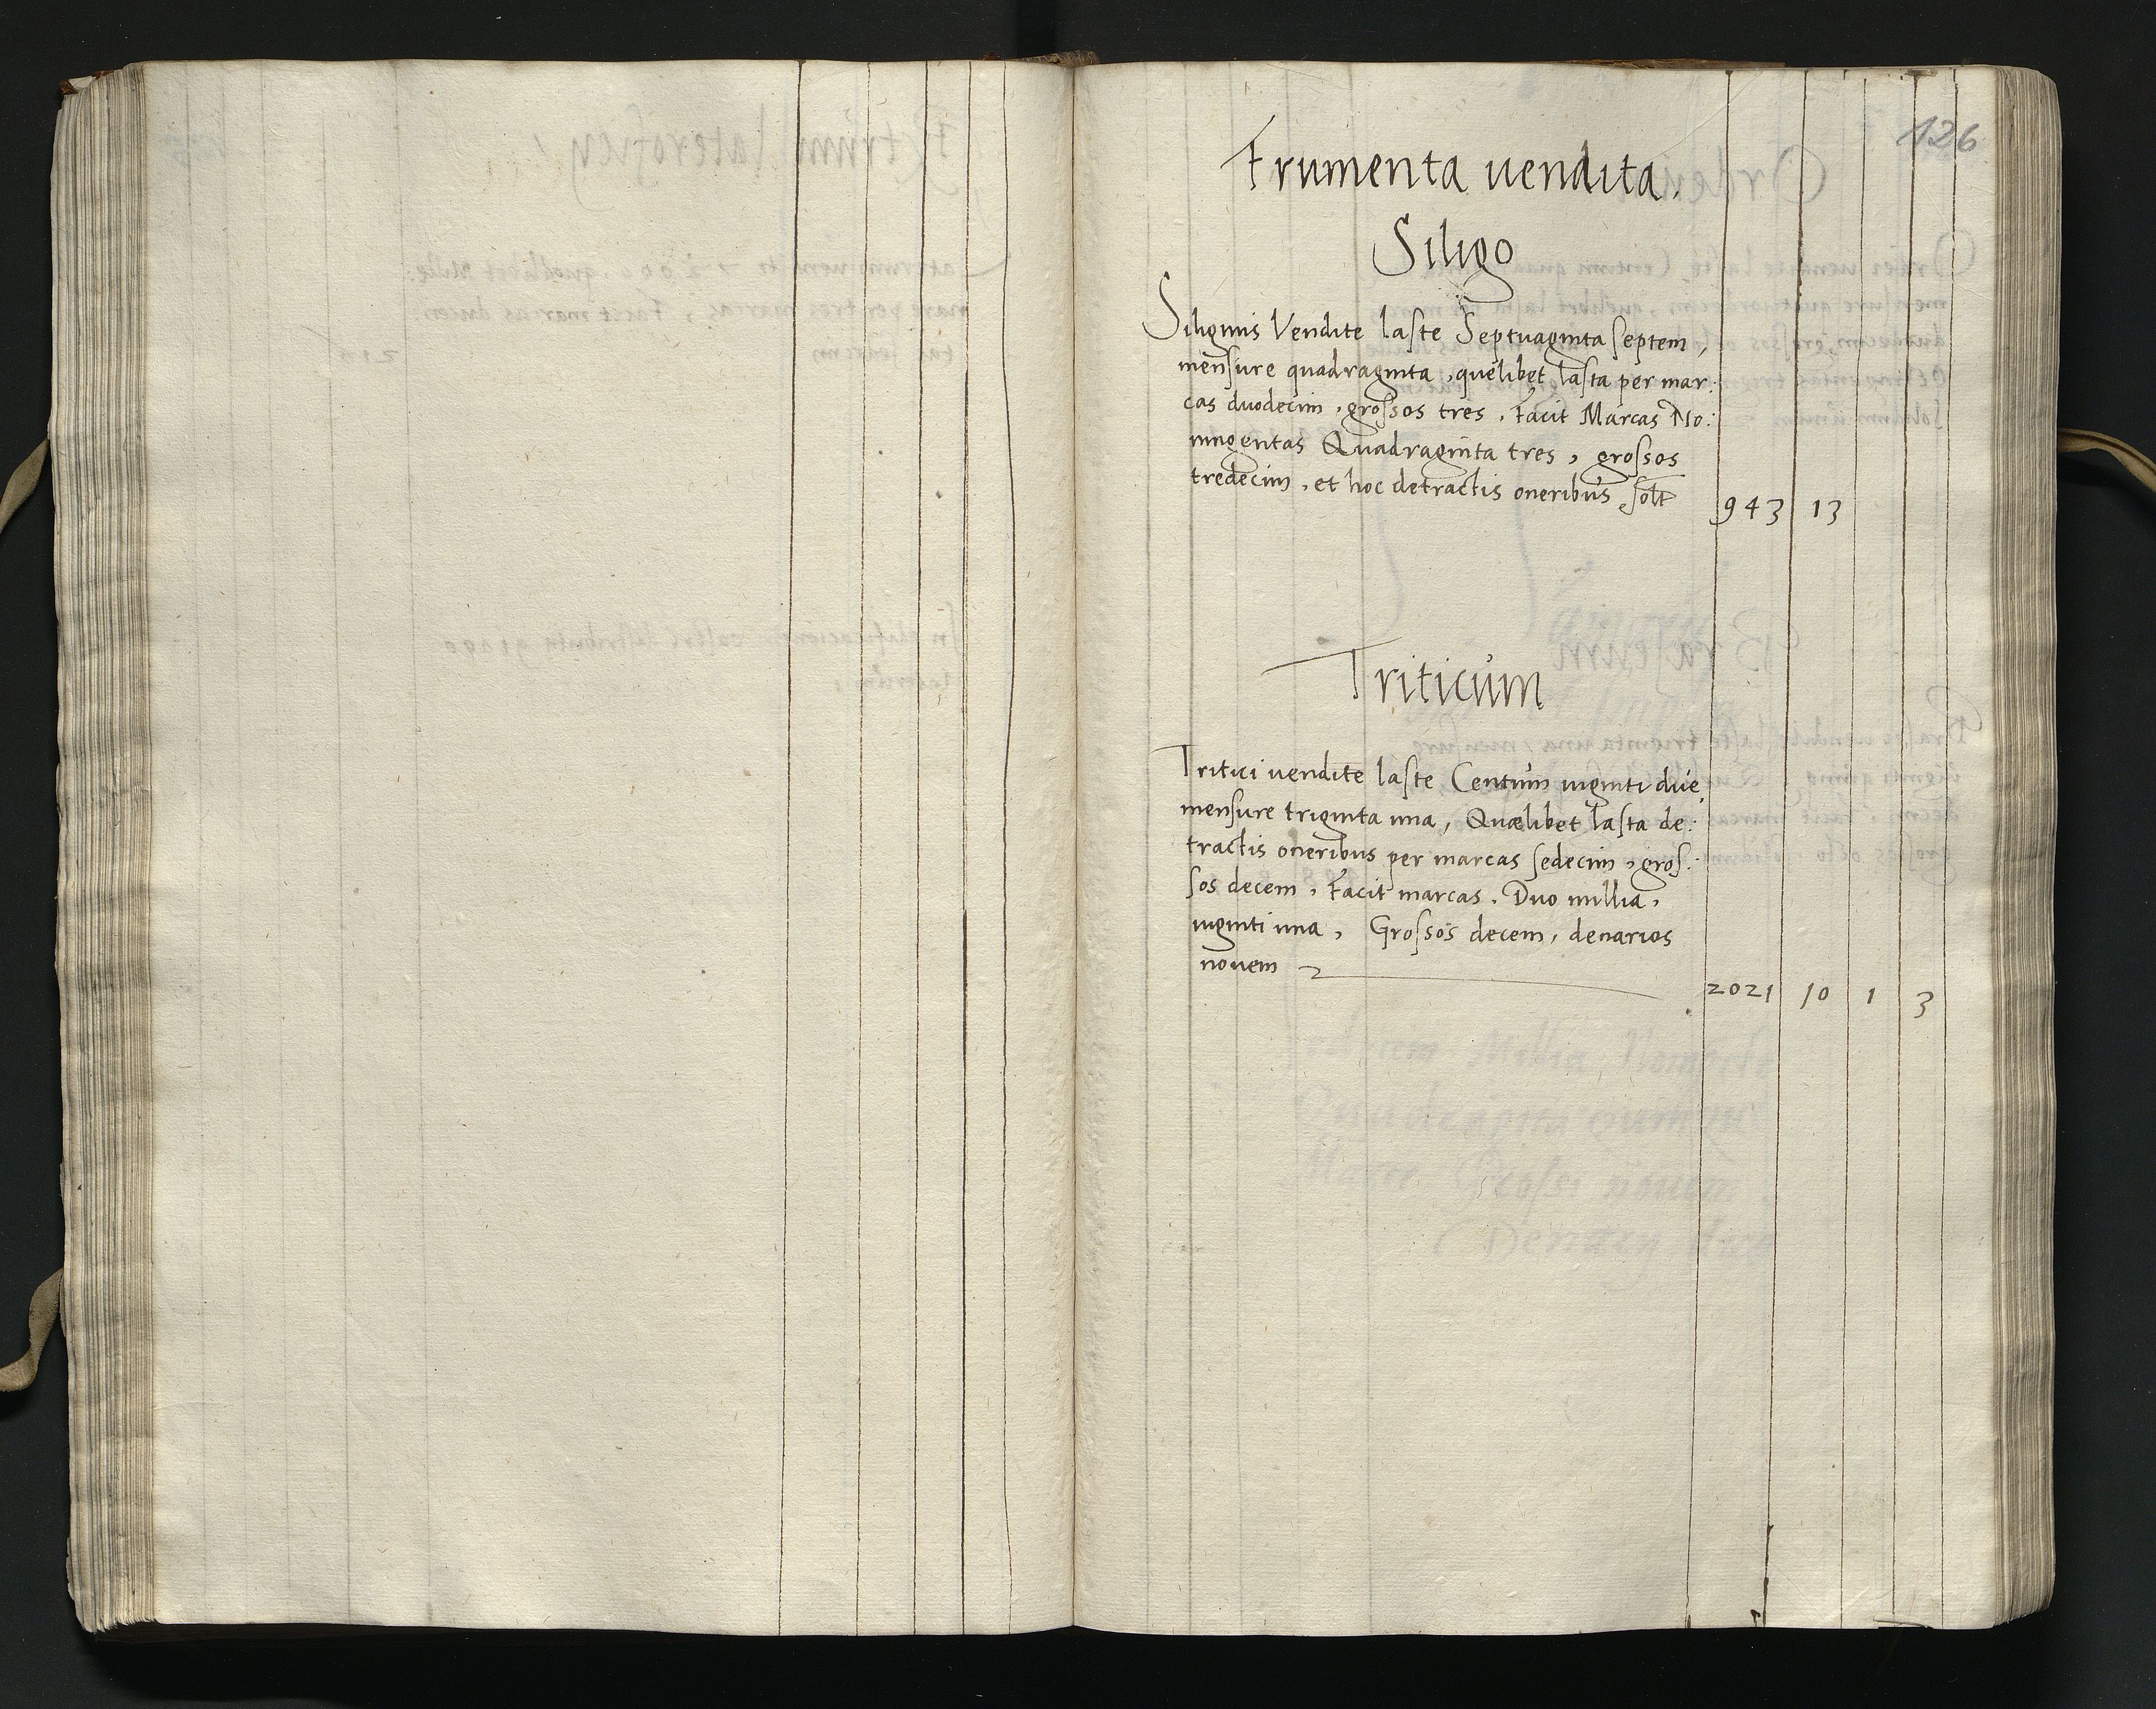 126
Frumenta uendita.
Siligo
Siliginis Vendite laste Septuaginta septem,
mensure quadraginta, quelibet lasta per mar:
cas duodecim, grossos tres, Facit Marcas No:
ningentas Quadraginta tres, grossos
tredecim, et hoc detractis oneribus 943 13
Triticum
Tritici uendite laste Centum uiginti due,
mensure triginta una, Quælibet lasta de:
tractis oneribus per marcas sedecim, gros:
sos decem, Facit marcas. Duo millia,
uiginti una, Grossos decem, denarios
nouem 2021 10 1 3